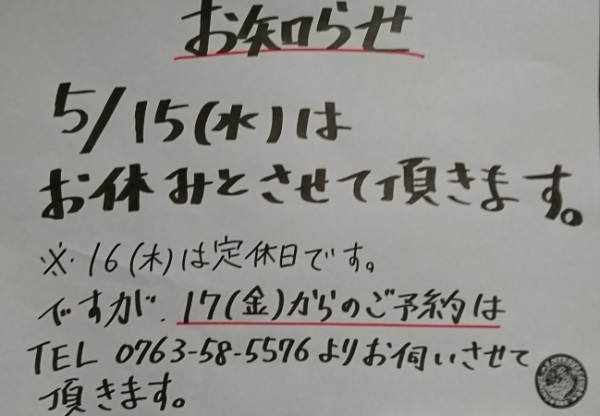 お知らせ
5/15(水)は
お休みとさせて頂きます。
※.16(木)は定休日です。
ですが、17(金)からのご予約は
TEL 0763-58-5576よりお伺いさせて
頂きます。